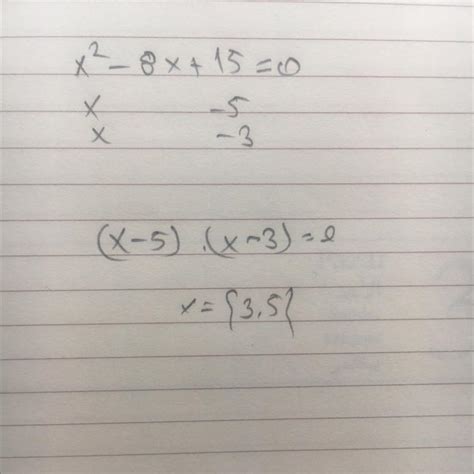 x² - 8x + 15 = 0
x -5
x -3
(x-5) . (x-3) = 0
x = {3,5}